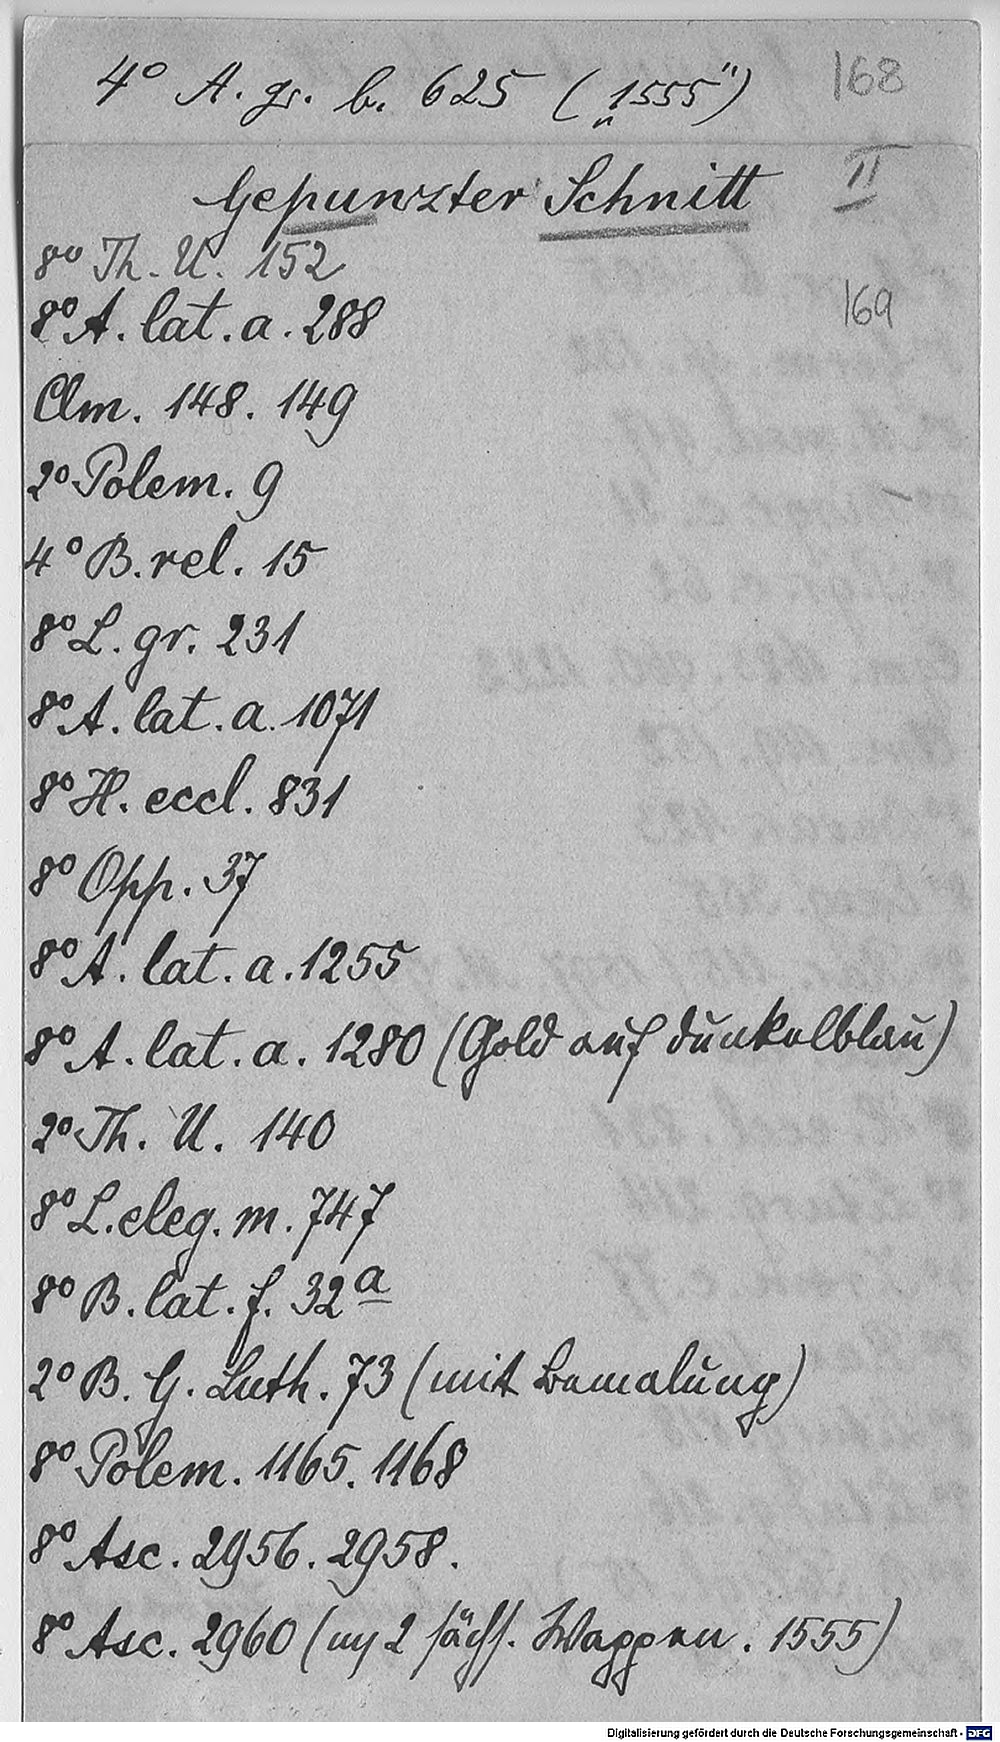 4° A. gr. b. 625 („1555“) 168
Gepunzter Schnitt II
8° Th. U. 152
8° A. lat. a. 288 169
Clm. 148. 149
2° Polem. 9
4° B. rel. 15
8° L. gr. 231
8° A. lat. a. 1071
8° H. eccl. 831
8° Opp. 37
8° A. lat. a. 1255
8° A. lat. a. 1280 (Gold auf dunkelblau)
2° Th. U. 140
8° L. eleg. m. 747
8° B. lat. f. 32a
2° B. G. Luth. 73 (mit Bemalung)
8° Polem. 1165. 1168
8° Asc. 2956. 2958.
8° Asc. 2960 (m 2 sächs. Wappen. 1555)
Digitalisierung gefördert durch die Deutsche Forschungsgemeinschaft - DFG